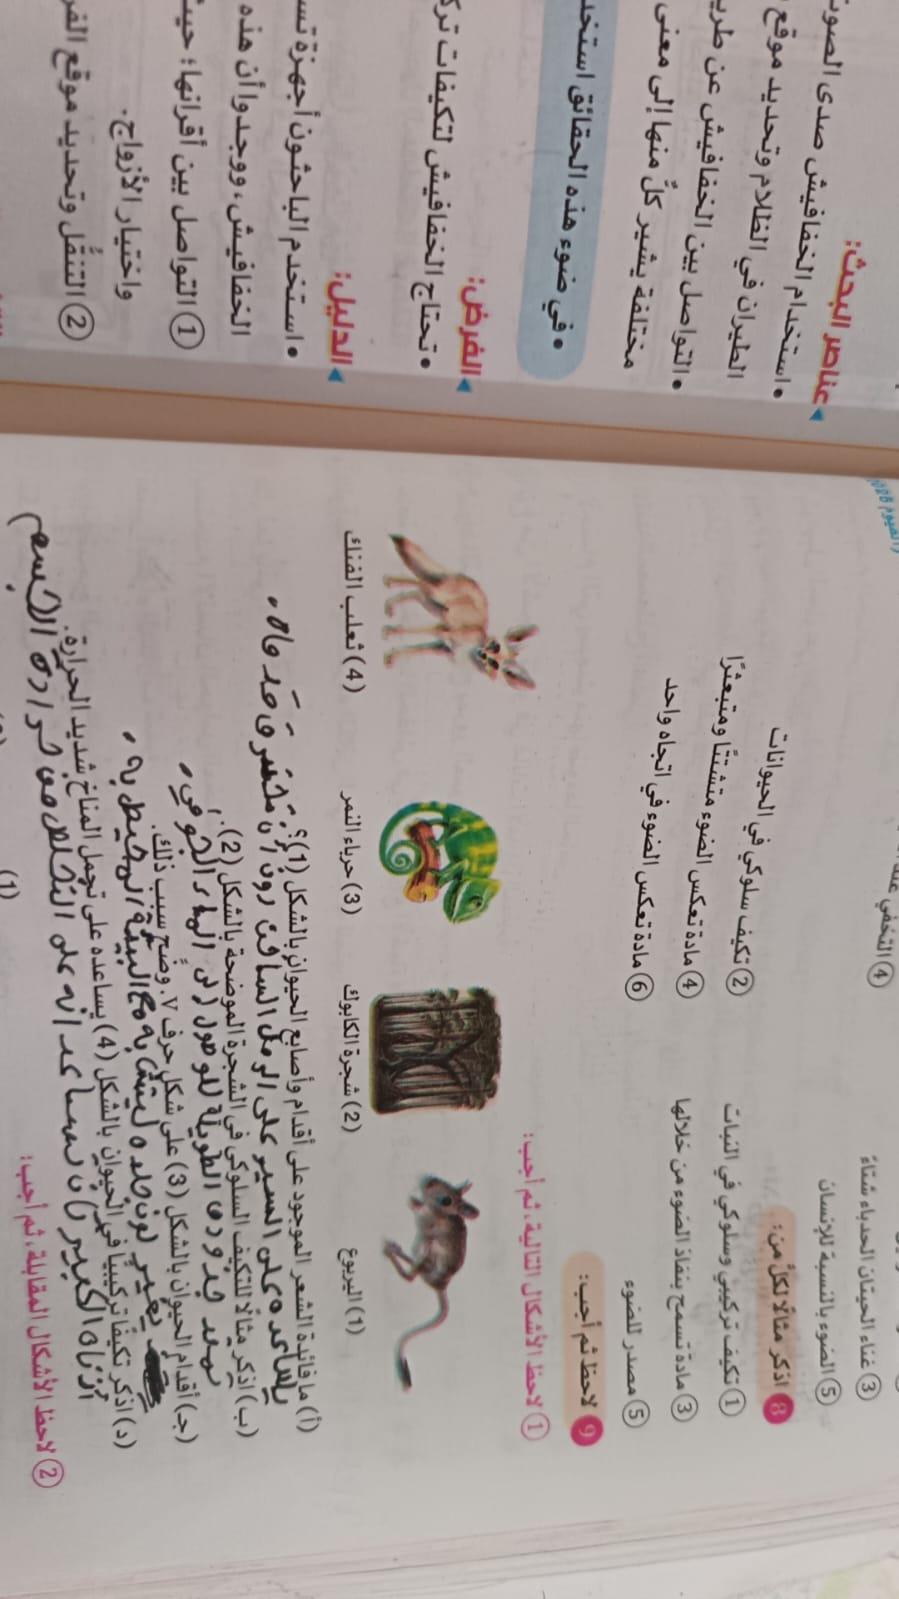 عناصر البحث:
• استخدام الخفافيش صدى الصوت
الطيران في الظلام وتحديد موقع
• التواصل بين الخفافيش عن طري
مختلفة يشير كلٌّ منها إلى معنى
• في ضوء هذه الحقائق استخد
الفرض:
• تحتاج الخفافيش لتكيفات ترك
الدليل:
• استخدم الباحثون أجهزة تس
الخفافيش، ووجدوا أن هذه
① التواصل بين أقرانها؛ حيث
واختيار الأزواج.
② التنقُّل وتحديد موقع الفر
(الفيوم 2025
③ غناء الحيتان الحدباء شتاءً
④ التخفي عند
⑤ الضوء بالنسبة للإنسان
8 اذكر مثالًا لكلٍّ من:
① تكيف تركيبي وسلوكي في النبات
② تكيف سلوكي في الحيوانات
③ مادة تسمح بنفاذ الضوء من خلالها
④ مادة تعكس الضوء متشتتًا ومتبعثرًا
⑤ مصدر للضوء
⑥ مادة تعكس الضوء في اتجاه واحد
9 لاحظ ثم أجب:
① لاحظ الأشكال التالية، ثم أجب:
(1) اليربوع
(2) شجرة الكابوك
(3) حرباء النمر
(4) ثعلب الفنك
(أ) ما فائدة الشعر الموجود على أقدام وأصابع الحيوان بالشكل (1)؟
يساعده على السير على الرمل الساخن دون أن تحترق قدماه.
(ب) اذكر مثالًا للتكيف السلوكي في الشجرة الموضحة بالشكل (2).
تمتد جذورها الطويلة للوصول إلى الماء الجوفي.
(جـ) أقدام الحيوان بالشكل (3) على شكل حرف V. وضِّح سبب ذلك.
يغير لون جلده ليتشابه مع البيئة المحيطة به.
(د) اذكر تكيفًا تركيبيًا في الحيوان بالشكل (4) يساعده على تحمل المناخ شديد الحرارة.
أذناه الكبيرتان تساعدانه على التخلص من حرارة الجسم
② لاحظ الأشكال المقابلة، ثم أجب:
(1)